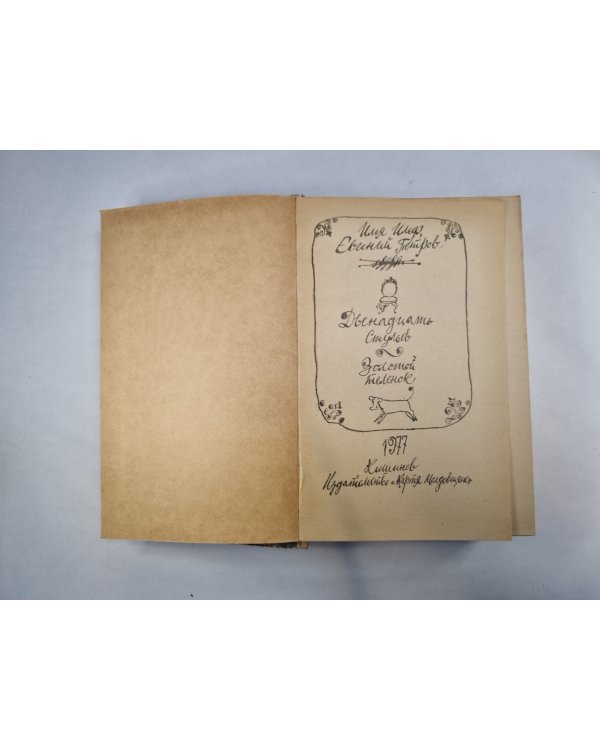 Илья Ильф,
Евгений Петров
Двенадцать
стульев
Золотой
теленок
1977
Кишинев
Издательство «Картя Молдовеняскэ»